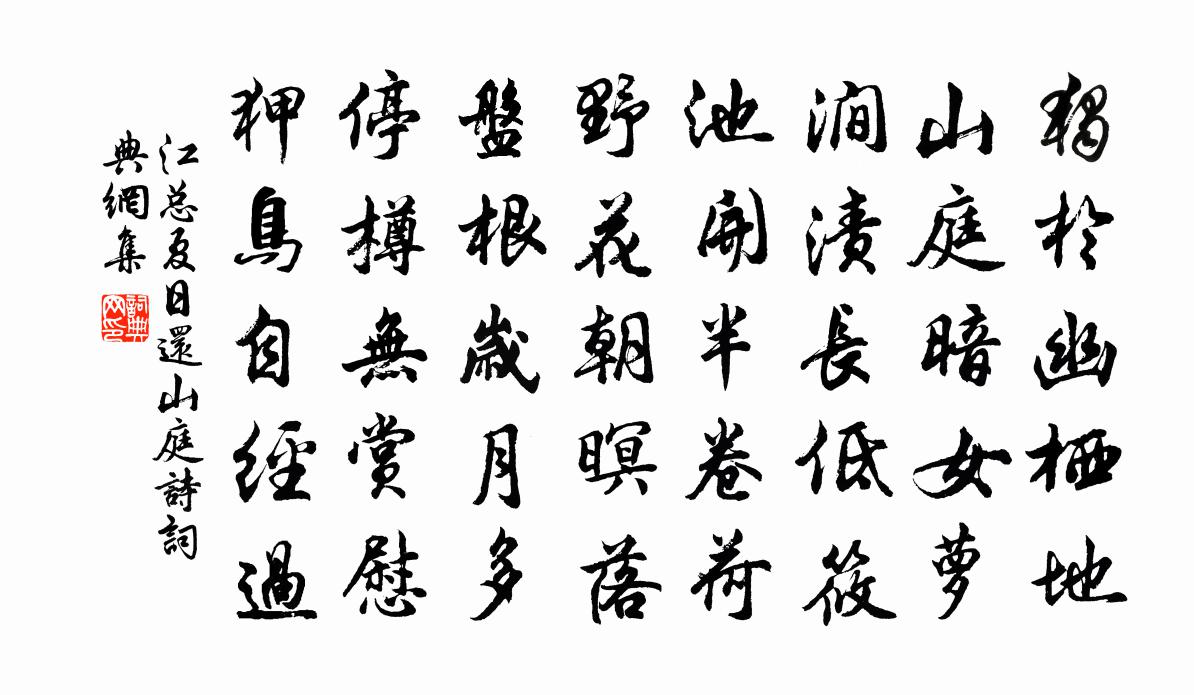 獨於幽栖地
山庭暗女萝
澗渍長低筱
池開半卷荷
野花朝暝落
盤根歲月多
停樽無賞慰
狎鳥自經過
江总夏日還山庭詩詞
典網集
詞典网印